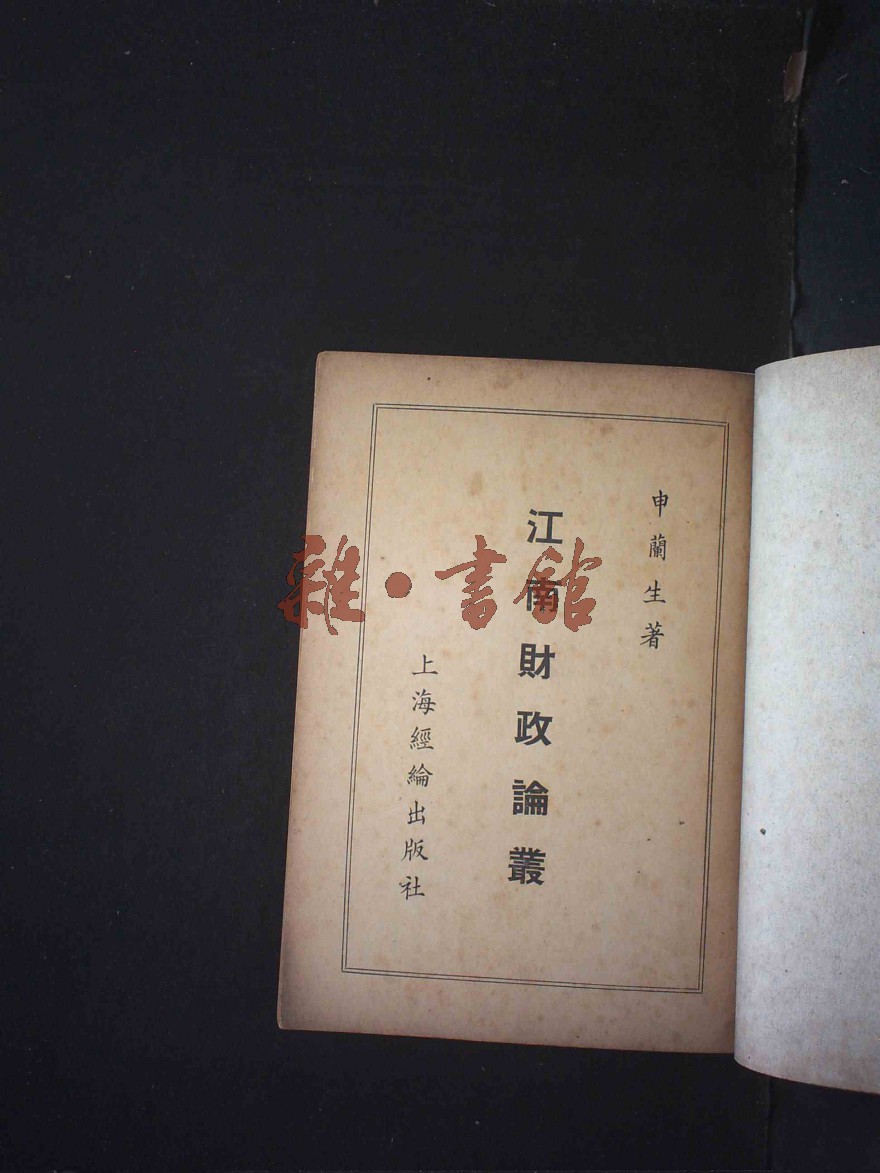 申蘭生著
江南財政論叢
上海經綸出版社
雜·書館